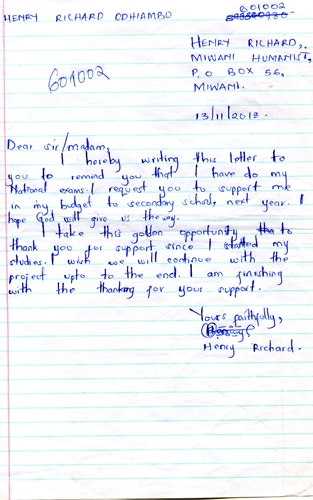 HENRY RICHARD ODHIAMBO
601002
HENRY RICHARD,
MIWANI HUMANIST,
601002
P.O BOX 56,
MIWANI.
13/11/2013.
Dear sir/madam,
I hereby writing this letter to
you to remind you that I have do my
National exams. I request you to support me
in my budget to secondary school, next year. I
hope God will give us the way.
I take this golden opportunity to
thank you for support since I started my
studies. I wish we will continue with the
project upto to the end. I am finishing
with the thanking for your support.
Yours faithfully,
Henry Richard.